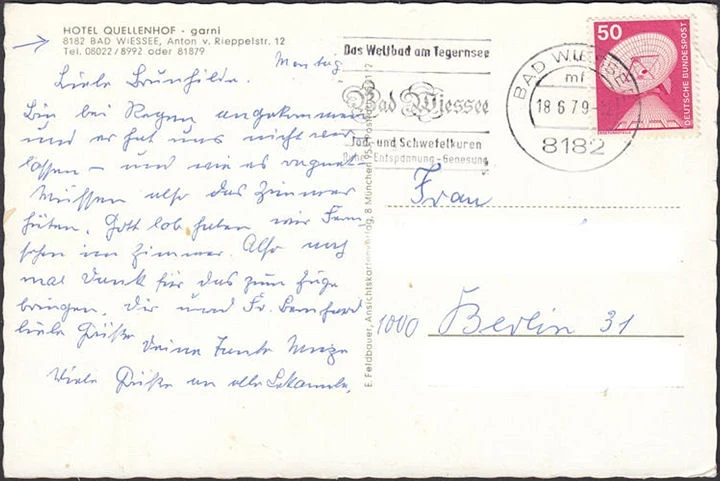 HOTEL QUELLENHOF - garni
8182 BAD WIESSEE, Anton v. Rieppelstr. 12
Tel. 08022/8992 oder 81879
Montag
Liebe Brunhilde.
Bin bei Regen angekommen
und er hat uns nicht ver
lassen – und wie es regnet
Müssen also das Zimmer
hüten. Gott lob haben wir Fern-
sehen im Zimmer. Also noch
mal Dank für das zum Zuge
bringen. Dir und Fr.
liebe Grüße
Deine Tante
Viele Grüße an alle Bekannte.
Das Weltbad am Tegernsee
Bad Wiessee
Jod- und Schwefelkuren
Entspannung - Genesung
BAD WIESSEE
mf
18.6.79
8182
50
DEUTSCHE BUNDESPOST
E. Feldbauer, Ansichtskartenverlag, 8 München 95
Frau
1000 Berlin 31